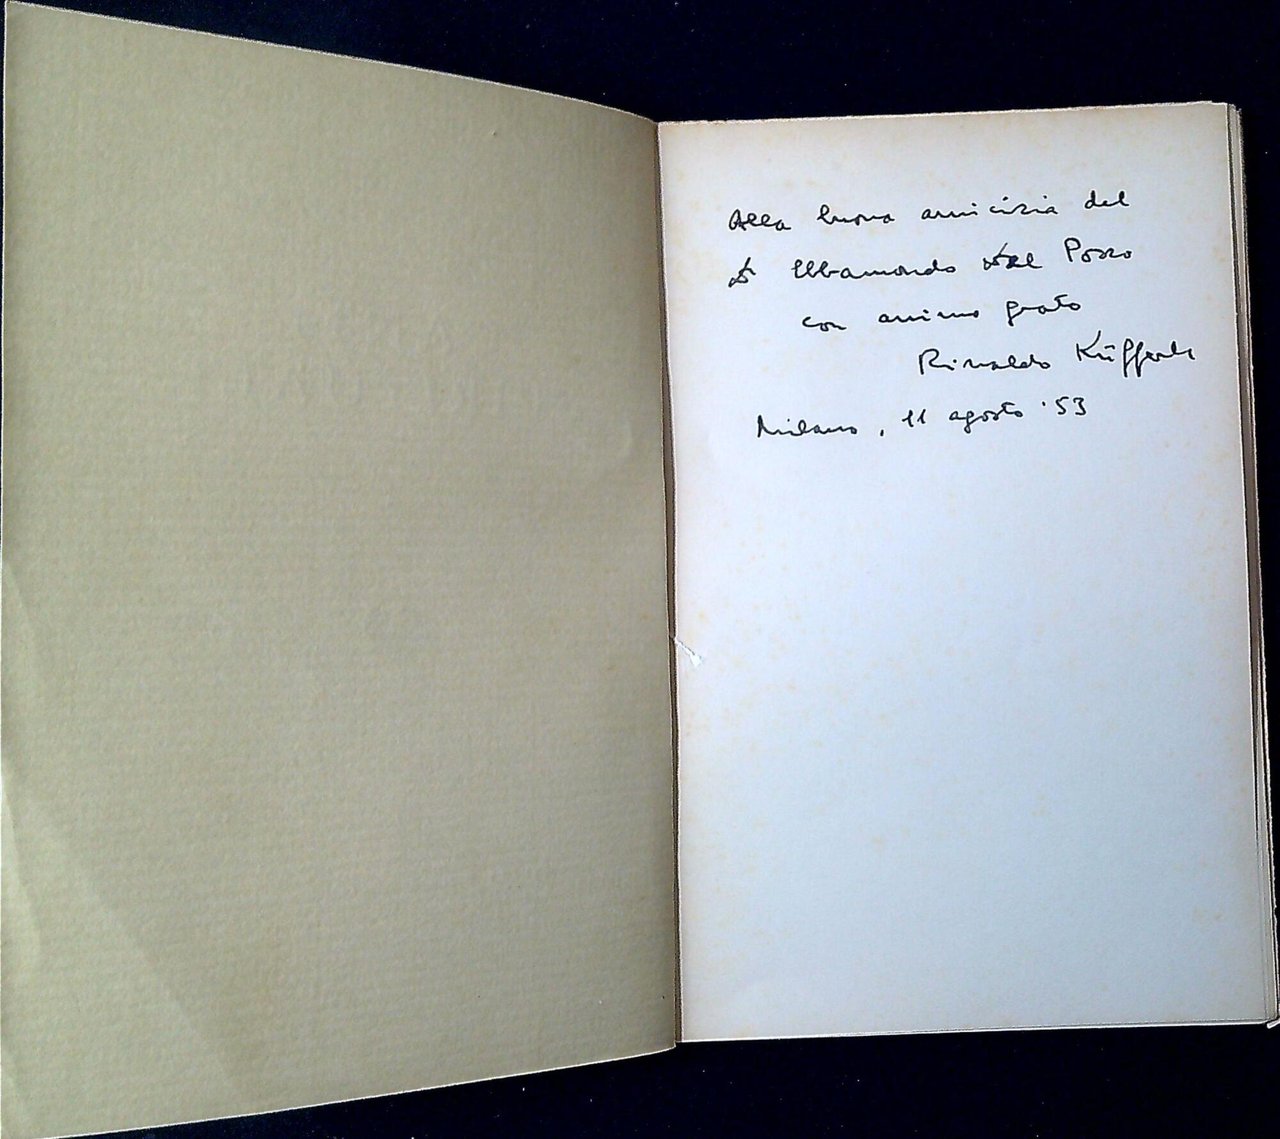 Alla buona amicizia del
Dr Ubbamondo Dal Pozzo
con animo grato
Rinaldo Küfferle
Milano, 11 agosto '53